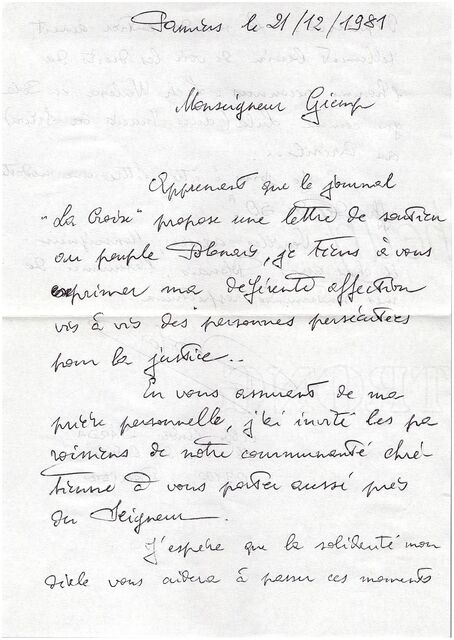 Pamiers le 21/12/1981
Monseigneur Glemp
Apprenant que le journal
"La Croix" propose une lettre de soutien
au peuple Polonais, je tiens à vous
exprimer ma déférente affection
vis à vis des personnes persécutées
pour la justice..
En vous assurant de ma
prière personnelle, j'ai invité les pa
roissiens de notre communauté chré-
tienne à vous porter aussi près
du Seigneur.
J'espère que la solidarité mon
diale vous aidera à passer ces moments